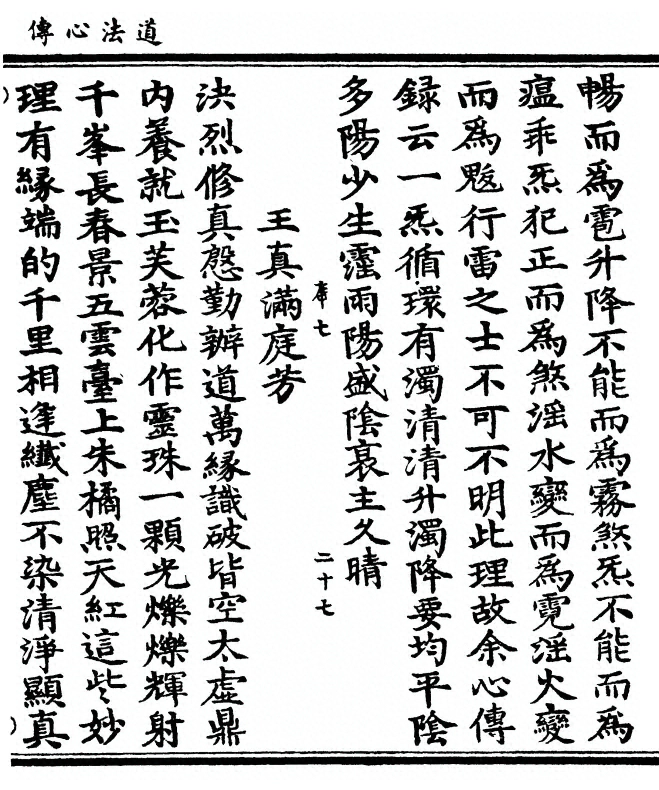 道法心傳
暢而爲雹升降不能而爲霧煞炁不能而爲
瘟乖炁犯正而爲煞滛水變而爲霓滛火變
而爲魃行雷之士不可不明此理故余心傳
録云一炁循環有濁清清升濁降要均平陰
多陽少生霾雨陽盛陰衰主久晴
庫七
二十七
王真滿庭芳
決烈修真慇勤辦道萬緣識破皆空太虛鼎
内養就玉芙蓉化作靈珠一顆光爍爍輝射
千峯長春景五雲臺上朱橘照天紅這些妙
理有緣端的千里相逢纎塵不染清淨顯真